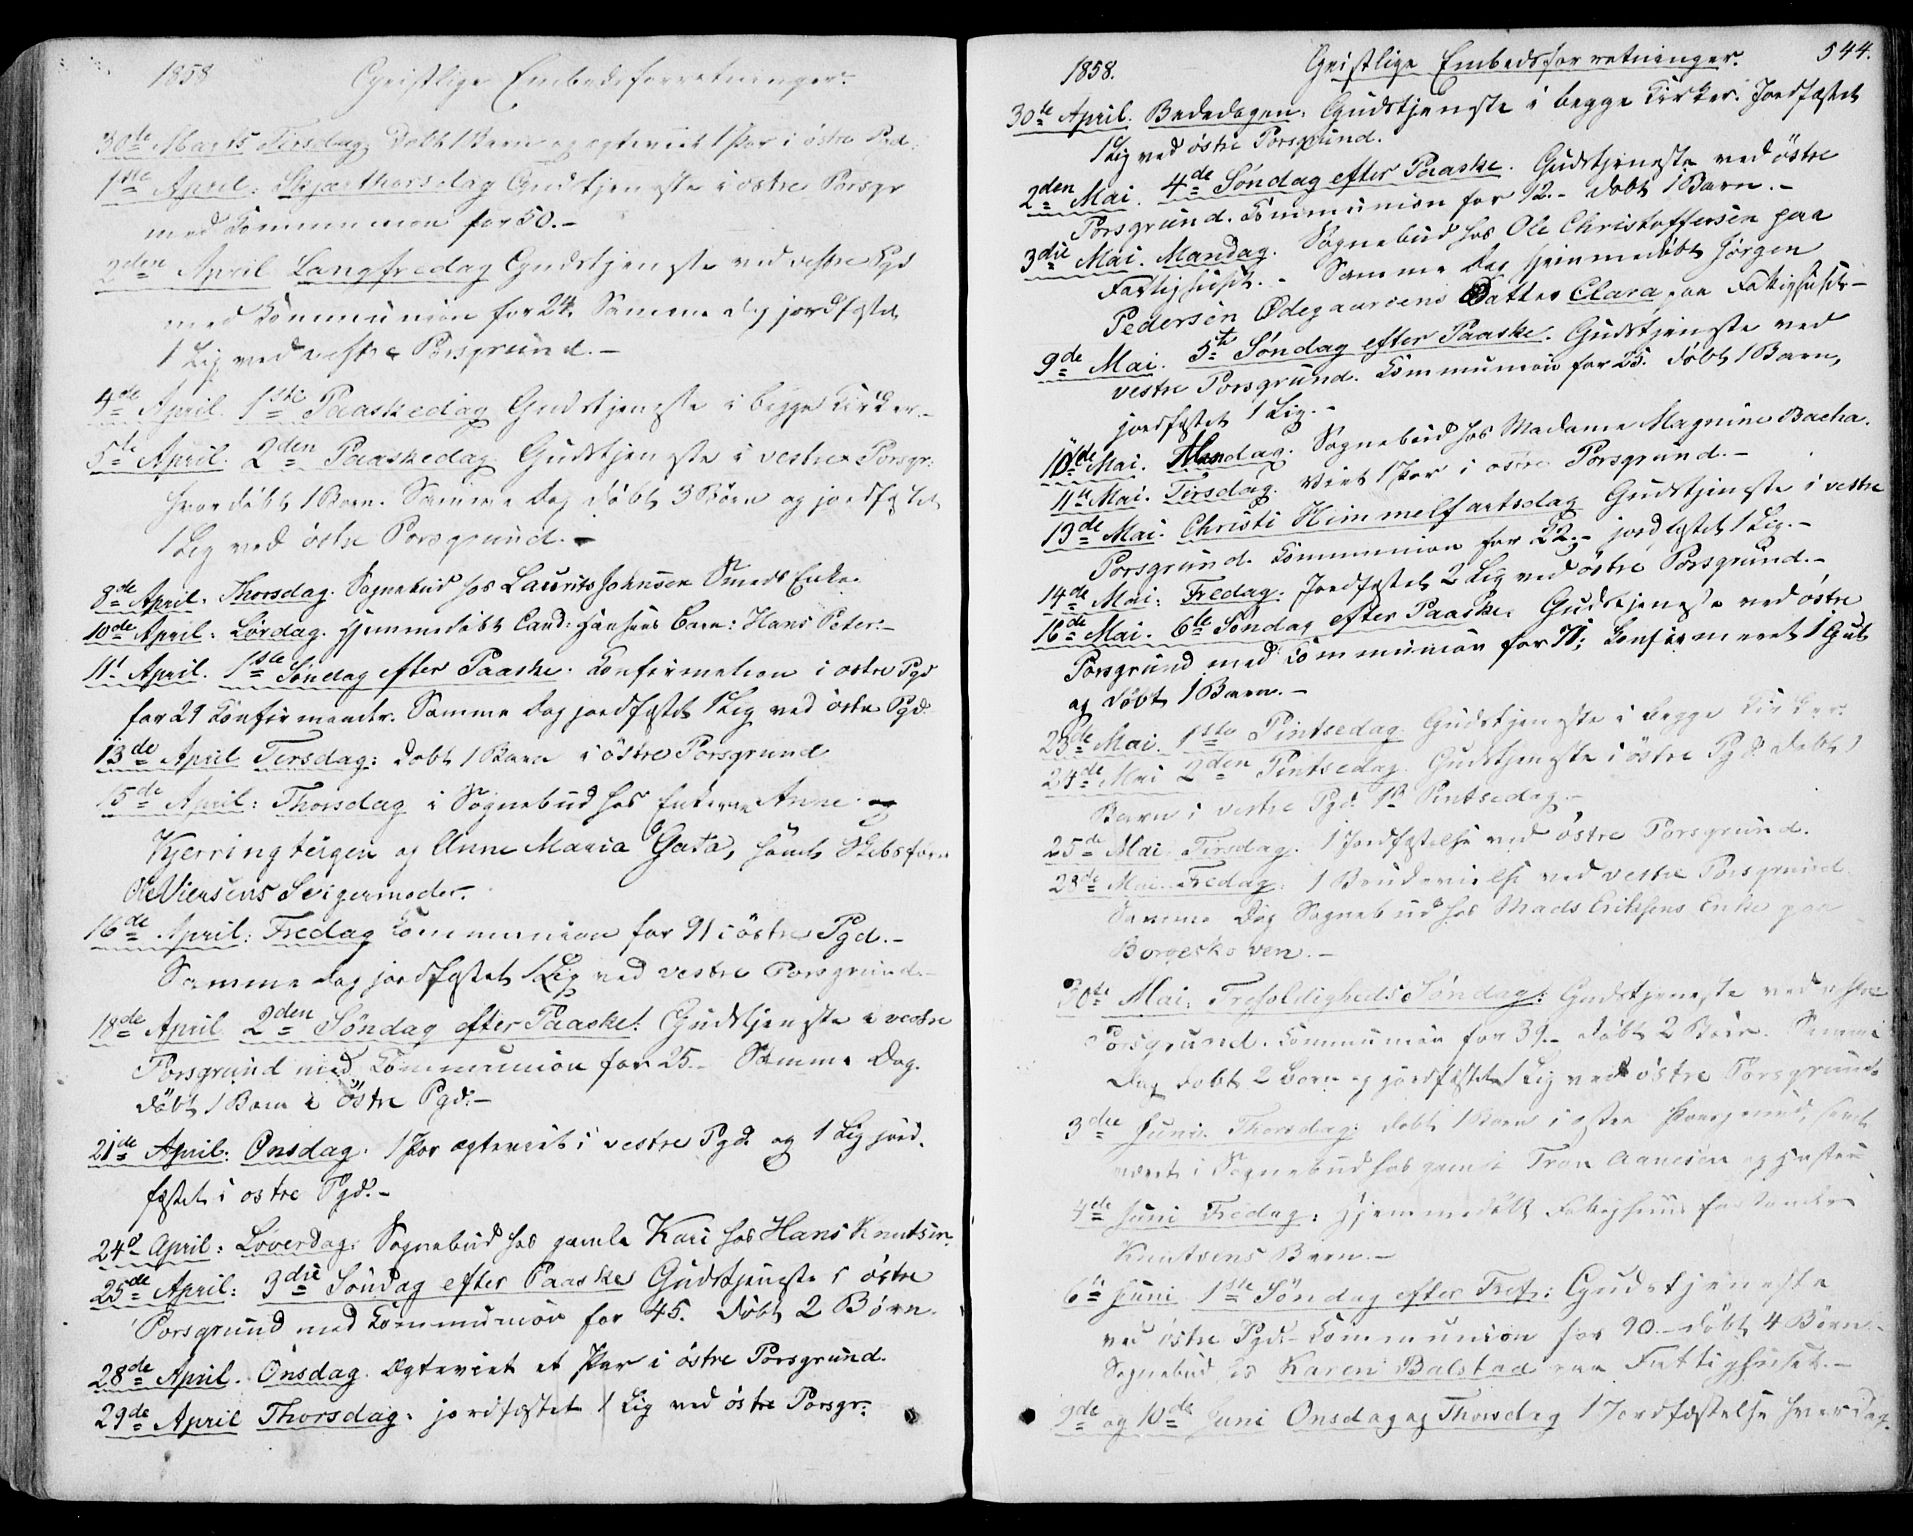 1858 Geistlige Embedsforretninger.
30te Marts Tirsdag. Døbt 1 Barn og ægteviet 1 Par i østre Psd.
1ste April: Skjærthorsdag Gudstjeneste i østre Porsgr
med Communion for 50.-
2den April Langfredag Gudstjeneste ved vestre Pgd
med Kommunion for 24. Samme Dag jordfæstet
1 Lig ved vestre Porsgrund.-
4de April. 1ste Paaskedag Gudstjeneste i begge Kirker.-
5te April. 2den Paaskedag. Gudstjeneste i vestre Porsgr:
hvor døbt 1 Barn. Samme Dag døbt 3 Børn og jordfæstet
1 Lig ved østre Porsgrund.-
8de April. Thorsdag. Sognebud hos Laurits Johnsen Smeds Enke.
10de April: Lørdag. Hjemmedøbt Cand: Hansens Barn: Hans Peter.-
11t April. 1ste Søndag efter Paaske. Konfirmation i østre Pgd
for 29 Konfirmander. Samme Dag jordfæstet 1 Lig ved østre Pgd.
13de April Tirsdag: døbt 1 Barn i østre Porsgrund
15de April: Thorsdag i Sognebud hos Enkerne Anne
Kjerringteigen og Anne Maria Gata, samt Skibsfører
Ole Niensens Svigermoder.
16de April: Fredag Communion for 91 i østre Pgd.-
Samme Dag jordfæstet 1 Lig ved vestre Porsgrund.-
18de April 2den Søndag efter Paaske! Gudstjeneste i vestre
Porsgrund med Kommunion for 25.- Samme Dag
døbt 1 Barn i østre Pgd.-
21de April: Onsdag. 1 Par ægteviet i vestre Pgd. og 1 Lig jord-
fæstet i østre Pgd.-
24de April: Løverdag: Sognebud hos gamle Kari hos Hans Knutsen.
25de April: 3die Søndag efter Paaske Gudstjeneste i østre
Porsgrund med Kommunion for 45. døbt 2 Børn.
28de April. Onsdag. Ægteviet et Par i østre Porsgrund.
29de April Thorsdag. jordfæstet 1 Lig ved østre Porsgr.
1858. Geistlige Embedsforretninger. 544.
30te April. Bededagen. Gudstjeneste i begge Kirker. Jordfæstet
1 Lig ved østre Porsgrund.
2den Mai. 4de Søndag efter Paaske. Gudstjeneste ved østre
Porsgrund. Kommunion for 12.- døbt 1 Barn.-
3die Mai. Mandag. Sognebud hos Ole Christoffersen paa
Fattighuset.- Samme Dag hjemmedøbt Jørgen
Pedersen Ødegaardens Datter Clara paa Fattighuset.-
9de Mai. 5te Søndag efter Paaske. Gudstjeneste ved
vestre Porsgrund. Kommunion for 25. døbt 1 Barn,
jordfæstet 1 Lig.-
10de Mai. Mandag. Sognebud hos Madame Magnine Bacha.
11te Mai. Tirsdag. viet 1 Par i østre Porsgrund.-
13de Mai. Christi Himmelfartsdag Gudstjeneste i vestre
Porsgrund. Kommunion for 22.- jordfæstet 1 Lig.-
14de Mai: Fredag. Jordfæstet 2 Lig ved østre Porsgrund.-
16de Mai. 6te Søndag efter Paaske. Gudstjeneste ved østre
Porsgrund med Communion for 71; Konfirmeret 1 Gut
og døbt 1 Barn.-
23de Mai. 1ste Pintsedag Gudstjeneste i begge Kirker.
24de Mai 2den Pintsedag. Gudstjeneste i østre Pgd døbt 1
Barn i vestre Pgd. Pintsedag.-
25de Mai Tirsdag. 1 Jordfæstelse ved østre Porsgrund.
28de Mai. Fredag: 1 Brudevielse ved vestre Porsgrund.
Samme Dag Sognebud hos Mads Eriksens Enke paa
Borgeskoven.-
30te Mai. Trefoldigheds Søndag: Gudstjeneste ved vestre
Porsgrund. Kommunion for 39.- døbt 2 Børn. Samme
Dag døbt 2 Børn og jordfæstet 1 Lig ved østre Porsgrund.
3die Juni. Thorsdag: døbt 1 Barn i østre Porsgrund, samt
været i Sognebud hos gamle Aanesen og
4de Juni Fredag: Hjemmedøbt Fattighuus
Knutsens Barn.-
6te Juni 1ste Søndag efter Tref: Gudstjeneste
ved østre Pgd.- Kommunion for 90.- døbt 4 Børn.-
Sognebud hos Karen Balstad paa Fattighuset.-
9de og 10de Juni Onsdag og Thorsdag 1 Jordfæstelse hver Dag.